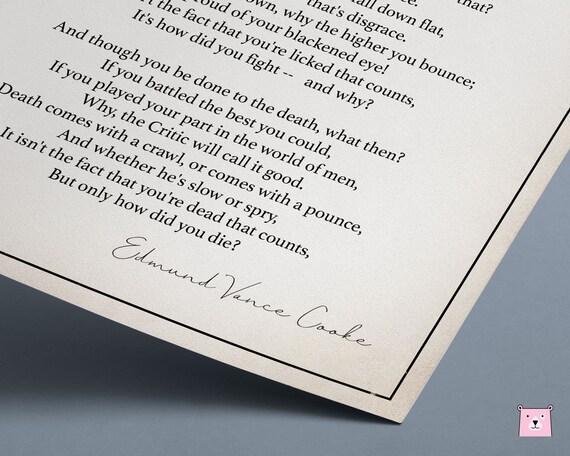 that?
all down flat,
that's disgrace.
own, why the higher you bounce;
roud of your blackened eye!
t the fact that you're licked that counts,
It's how did you fight -- and why?
And though you be done to the death, what then?
If you battled the best you could,
If you played your part in the world of men,
Why, the Critic will call it good.
Death comes with a crawl, or comes with a pounce,
And whether he's slow or spry,
It isn't the fact that you're dead that counts,
But only how did you die?
Edmund Vance Cooke